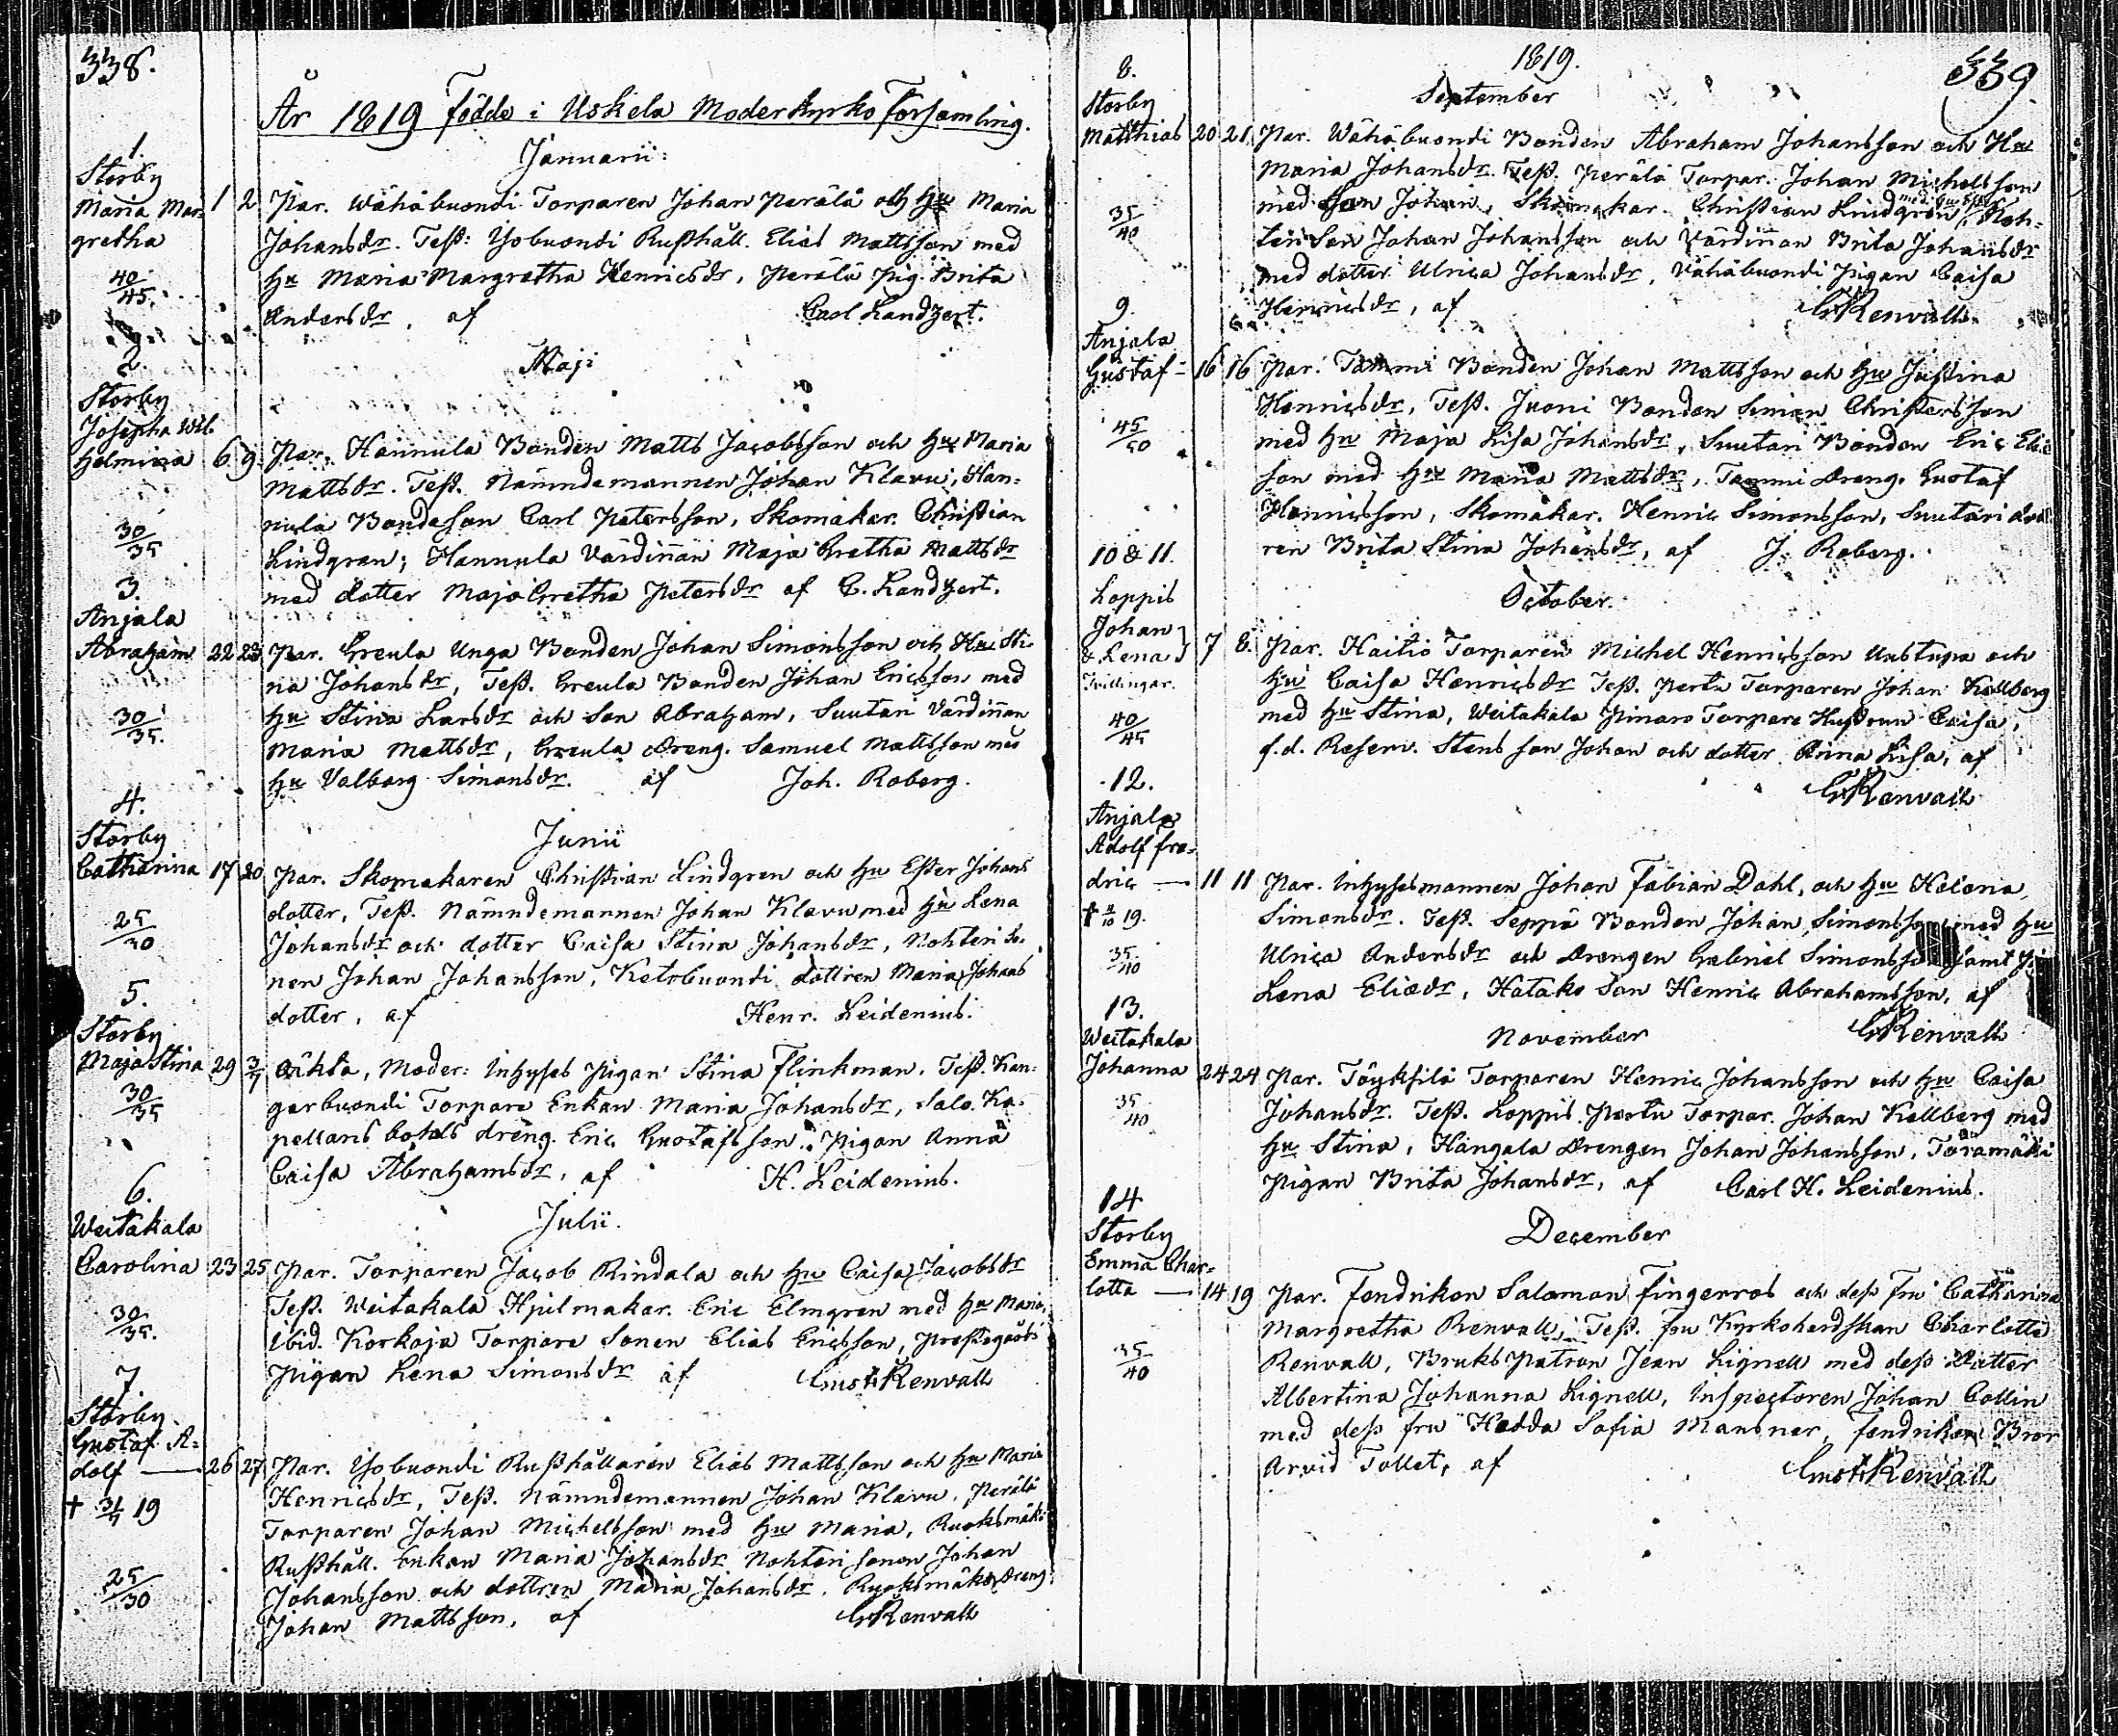 338.
År 1819 födde i Uskela Moderkyrko Församling.
Januarii:
1.
Storby
Maria Mar= 1 2 Par. Wähäbuondi Torparen Johan Perälä och Hu Maria
gretha Johansdr. Test: Isobuondi Rusthåll. Elias Mattsson med
40/45. Hu Maria Margretha Henricsdr, Perälä Pig. Brita
Andersdr, af Carl Landzert.
Maji
2.
Storby
Josepha Wil=
helmina 6 9 Par. Hannula Bonden Matts Jacobsson och Hu Maria
Mattsdr. Test. Nämndemannen Johan Klavu, Han=
nula Bondeson Carl Petersson, Skomakar. Christian
30/35 Lindgren; Hannula Värdinan Maja Gretha Mattsdr
med dotter Maja Gretha Petersdr af C. Landzert.
3.
Anjala
Abraham 22 23 Par. Greula Unga Bonden Johan Simonsson och Hu Sti=
na Johansdr, Test. Greula Bonden Johan Ericsson med
30/35. Hu Stina Larsdr och Son Abraham, Suutari Värdinan
Maria Mattsdr, Greula Dreng. Samuel Mattsson med
Hu Valborg Simonsdr. af Joh. Roberg.
4.
Junii
Storby
Catharina 17 20 Par. Skomakaren Christian Lindgren och Hu Ester Johans
dotter, Test. Nämndemannen Johan Klavu med Hu Lena
25/30 Johansdr och dotter Caisa Stina Johansdr, Nohteri So=
nen Johan Johansson, Ketobuondi dottren Maria Johans
dotter, af Henr. Leidenius.
5.
Storby
Maja Stina 29 3/7 Oäkta, Moder: Inhyses Pigan Stina Flinkman. Test. Kan=
30/35 garbuondi Torpare Enkan Maria Johansdr, Salo Ka=
pellans bohls dräng. Eric Gustafsson. Pigan Anna
Caisa Abrahamsdr, af H. Leidenius.
6.
Julii.
Weitakala
Carolina 23 25 Par. Torparen Jacob Rindala och Hu Caisa Jacobsdr
Test. Weitakala Hjulmakar. Eric Elmgren med Hu Maria,
30/35. ibid. Korkoja Torpare Sonen Elias Ericsson, Prestegårds
Pigan Lena Simonsdr af Gust. Renvall
7
Storby
Gustaf A=
dolf 26 27 Par. Isobuondi Rusthållaren Elias Mattsson och Hu Maria
Henricsdr, Test. Nämndemannen Johan Klavu, Perälä
† 31/7 19 Torparen Johan Michelsson med Hu Maria, Ruoksmäki
Rusthåll. Enkan Maria Johansdr Nohteri sonen Johan
25/30 Johansson och dottren Maria Johansdr. Ruoksmäki Dreng
Johan Mattsson, af G Renvall
339.
1819.
September
8.
Storby
Matthias 20 21 Par. Wähäbuondi Bonden Abraham Johansson och Hu
Maria Johansdr. Test. Perälä Torpar. Johan Michelsson
35/40 med Son Johan, Skomakar. Christian Lindgren med Hu Ester, Noh=
teri Son Johan Johansson och Värdinan Brita Johansdr
med dotter Ulrica Johansdr, Vähäbuondi Pigan Caisa
Henricsdr, af G Renvall.
9.
Anjala
Gustaf 16 16 Par. Tammi Bonden Johan Mattsson och Hu Justina
Henricsdr, Test. Juoni Bonden Simon Christersson
45/50 med Hu Maja Lisa Johansdr, Suutari Bonden Eric Elis
son med Hu Maria Mattsdr, Tammi Dreng. Gustaf
Henricsson, Skomakar. Henric Simonsson, Suutari dott
ren Brita Stina Johansdr, af J. Roberg.
October.
10 & 11.
Loppis
Johan
& Lena 7 8. Par. Haitio Torparen Michel Henricsson Unstupa och
Tvillingar. Hu Caisa Henricsdr Test. Pertu Torparen Johan Kallberg
40/45 med Hu Stina, Weitakala Pinaro Torpare Hustrun Caisa,
f.d. Reserv. Stens son Johan och dotter Anna Lisa, af
G Renvall
12.
Anjala
Adolf Fre=
dric 11 11 Par. Inhysesmannen Johan Fabian Dahl, och Hu Helena
† 11/10 19. Simonsdr. Test. Seppä Bonden Johan Simonsson med Hu
35/40 Ulrica Andersdr och Drengen Gabriel Simonsson samt
Lena Eliædr, Hatako Son Henric Abrahamsson, af
G Renvall
November
13.
Weitakala
Johanna 24 24 Par. Töykkilä Torparen Henric Johansson och Hu Caisa
35/40 Johansdr. Test. Loppis Pertu Torpar. Johan Kallberg med
Hu Stina, Hangala Drengen Johan Johansson, Töramäki
Pigan Brita Johansdr, af Carl H. Leidenius.
December
14
Storby
Emma Char=
lotta 14 19 Par. Fendriken Salomon Fingerros och dess Fru Catharina
Margretha Renvall; Test. Fru Kyrkoherdskan Charlotta
35/40 Renvall, Bruks Patron Jean Lignell med dess Dotter
Albertina Johanna Lignell, Inspectoren Johan Collin
med dess fru Hedda Sofia Mansner, Fendriken Bror
Arvid Tollet, af Gust. Renvall